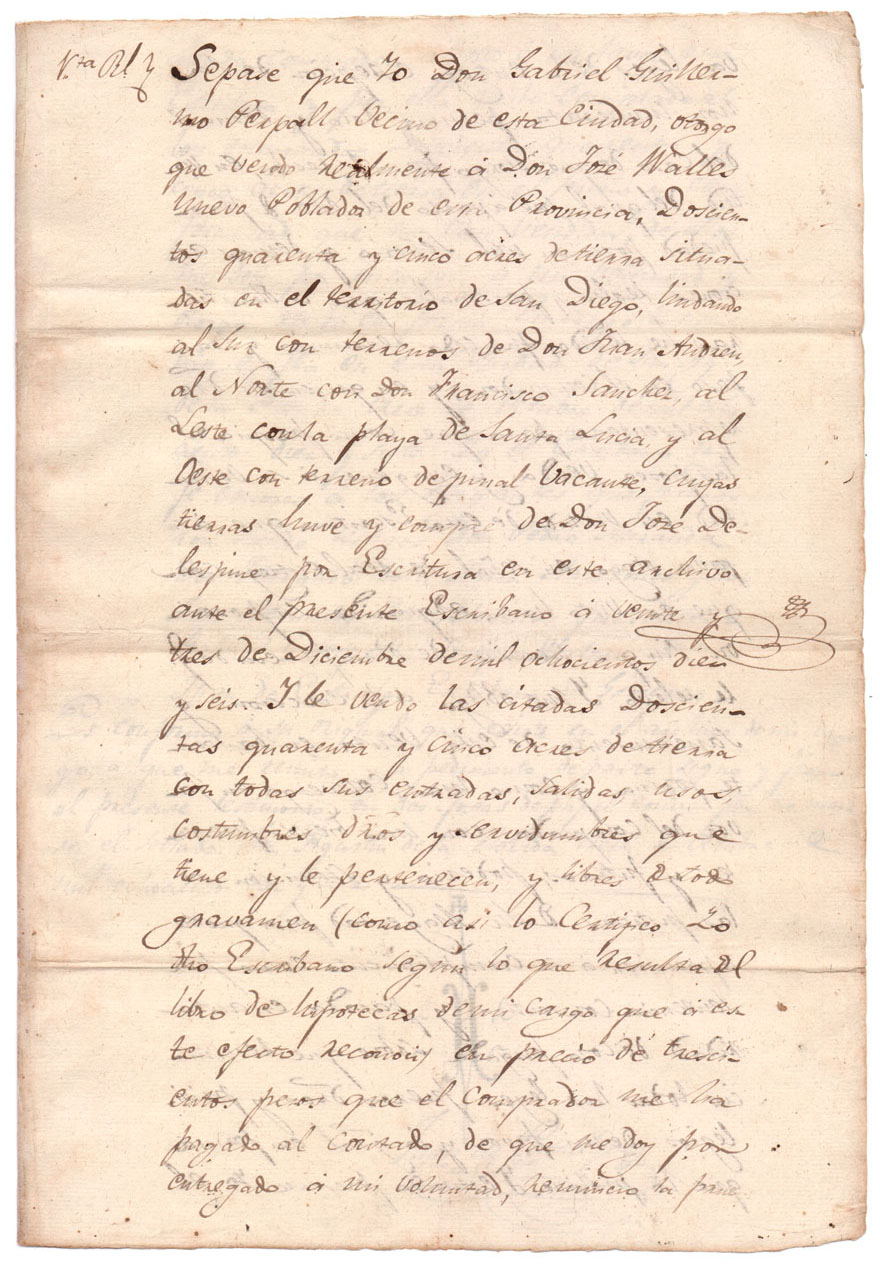 V.ta Rl
Sepase que Yo Don Gabriel Guiller-
mo Perpall Vecino de esta Ciudad, otorgo
que vendo realmente á Don José Walles
nuevo Poblador de esta Provincia, Doscien-
tos quarenta y cinco acres de tierra situa-
das en el territorio de San Diego, lindando
al Sur con terrenos de Don Juan Andreu,
al Norte con Don Francisco Sanchez, al
Leste con la playa de Santa Lucia, y al
Oeste con terreno de pinal vacante, cuyas
tierras huve y compré de Don José De-
lespine por Escritura en este archivo
ante el presente Escribano á veinte y
tres de Diciembre de mil ochocientos diez
y seis. Y le vendo las citadas Doscien-
tas quarenta y cinco acres de tierra
con todas sus entradas, salidas, usos,
costumbres dros y servidumbres que
tiene y le pertenecen, y libres de todo
gravámen (como asi lo Certifico Yo
dho Escribano según lo que resulta del
libro de hipotecas de mi cargo que á es-
te efecto reconocí) en precio de tresci-
entos pesos que el Comprador me ha
pagado al Contado, de que me doy por
entregado á mi voluntad, renuncio la prue